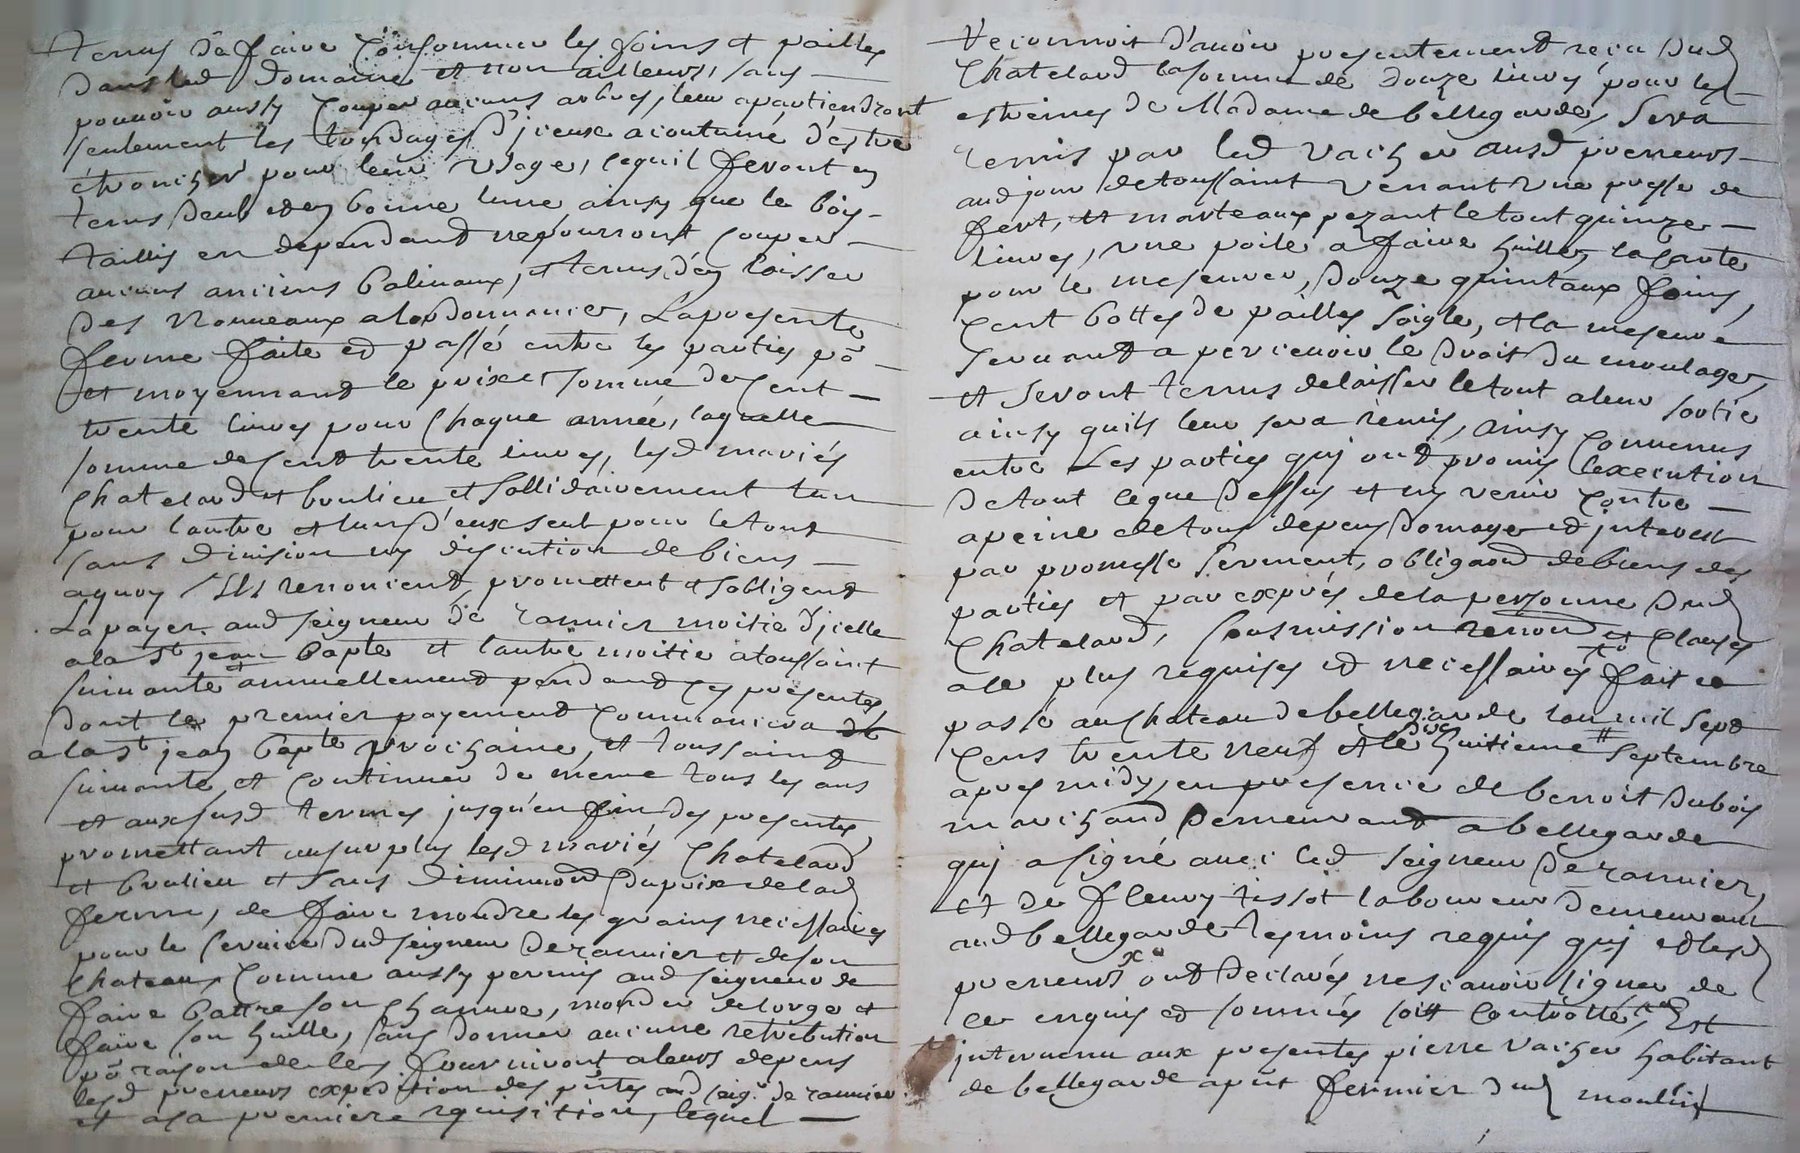 tenus de faire consommer les foins et pailles
dans led domaine et non ailleurs, sans
pouvoir aussy couper aucuns arbres, leur apartiendront
seulement les tondages d'jceux acoutumé d'estre
étroncher pour leur usage, cequil feront en
tems deub et en bonne lune ainsy que le bois
taillis en dependant ne pourront couper
aucuns anciens balivaux, et tenus d'en laisser
des nouveaux a lordonnance, La presente
ferme faite et passé entre les parties po
et moyennant le prix et somme de cent
trente livres pour chaque année, laquelle
somme de cent trente livres, lesd mariés
chatelard et brulieu et sollidairement lun
pour lautre et lun d'eux seul pour le tout
sans division ny discution de biens
a quoy ils renoncent, promettent et sobligent
La payer aud seigneur de rannier moitie d'jcelle
a la st jean bapte et lautre moitie a toussaint
suivante annuellement pendant ces presentes,
dont le premier payement commancera
a la st jean bapte prochaine, et toussaint
suivante, et continuer de meme tous les ans
et auxsusd termes jusqu'en fin des presentes,
promettant au surplus lesd mariés chatelard
et brulieu et sans diminuon du prix de lad
ferme, de faire moudre les grains necessaires
pour le service dud seigneur de rannier et de son
chateau, comme aussy permis aud seigneur de
faire battre son chanvre, monder de lorge et
faire son huille, sans donner aucune retribution
po raison de les fourniront a leurs depens
lesd preneurs expedition des pntes aud seigr de rannier
et a sa premiere rquisition, lequel
reconnoit d'avoir presentement recu dud
chatelard la somme de douze livres pour les
estreines de Madame de bellegarde, sera
remis par led vacher ausd preneurs
aud jour de toussaint venant une presse de
fert, et marteaux pezant le tout quinze
livres, une poile a faire huille, la
pour le mesurer, douze quintaux foins,
cent bottes de pailles soigle, et la mesure
servant a percevoir le droit du moulage,
et seront tenus de laisser le tout a leur sortie
ainsy quils leur sera remis, ainsy convenus
entre Les parties qui ont promis lexecution
de tout ceque dessus et ny venir contre
a peine de tous depens domages et jnterest
par promesse serment, obligaon de biens des
parties et par exprés de la personne dud
chatelard, soumission renon et clauses
a le plus requises et necessaires fait et
passé au chateau de bellegarde lan mil sept
cens trente neuf et le dix huitieme septembre
apres midy, en presence de benoit dubois
marchand demeurant a bellegarde
qui a signé avec led seigneur de rannier,
et de fleury tissot laboureur demeurant
aud bellegarde tesmoins requis qui et lesd
preneurs ont declarés ne scavoir signer de
ce enquis et sommés soit controllé, Est
jntervenu aux presentes pierre vacher habitant
de bellegarde apnt fermier dud moulin